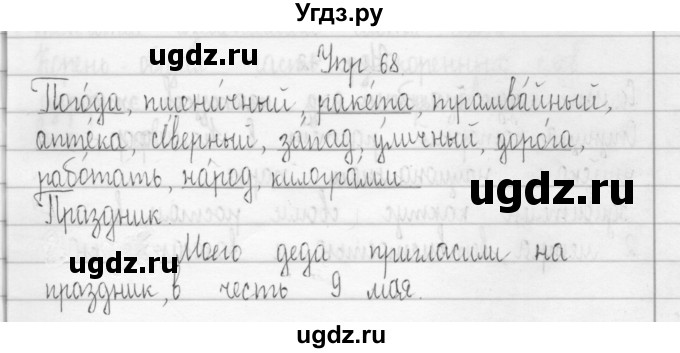 Угдз.ру
ugdz.ru ugdz.ru
Упр 68
Пого́да, пшени́чный, раке́та трамва́йный,
апте́ка, се́верный, за́пад, у́личный, доро́га,
рабо́тать, на́род, килогра́мм
ugdz.ru ugdz.ru
Праздник
Моего деда пригласили на
праздник, в честь 9 мая.
ugdz.ru ugdz.ru
ugdz.ru